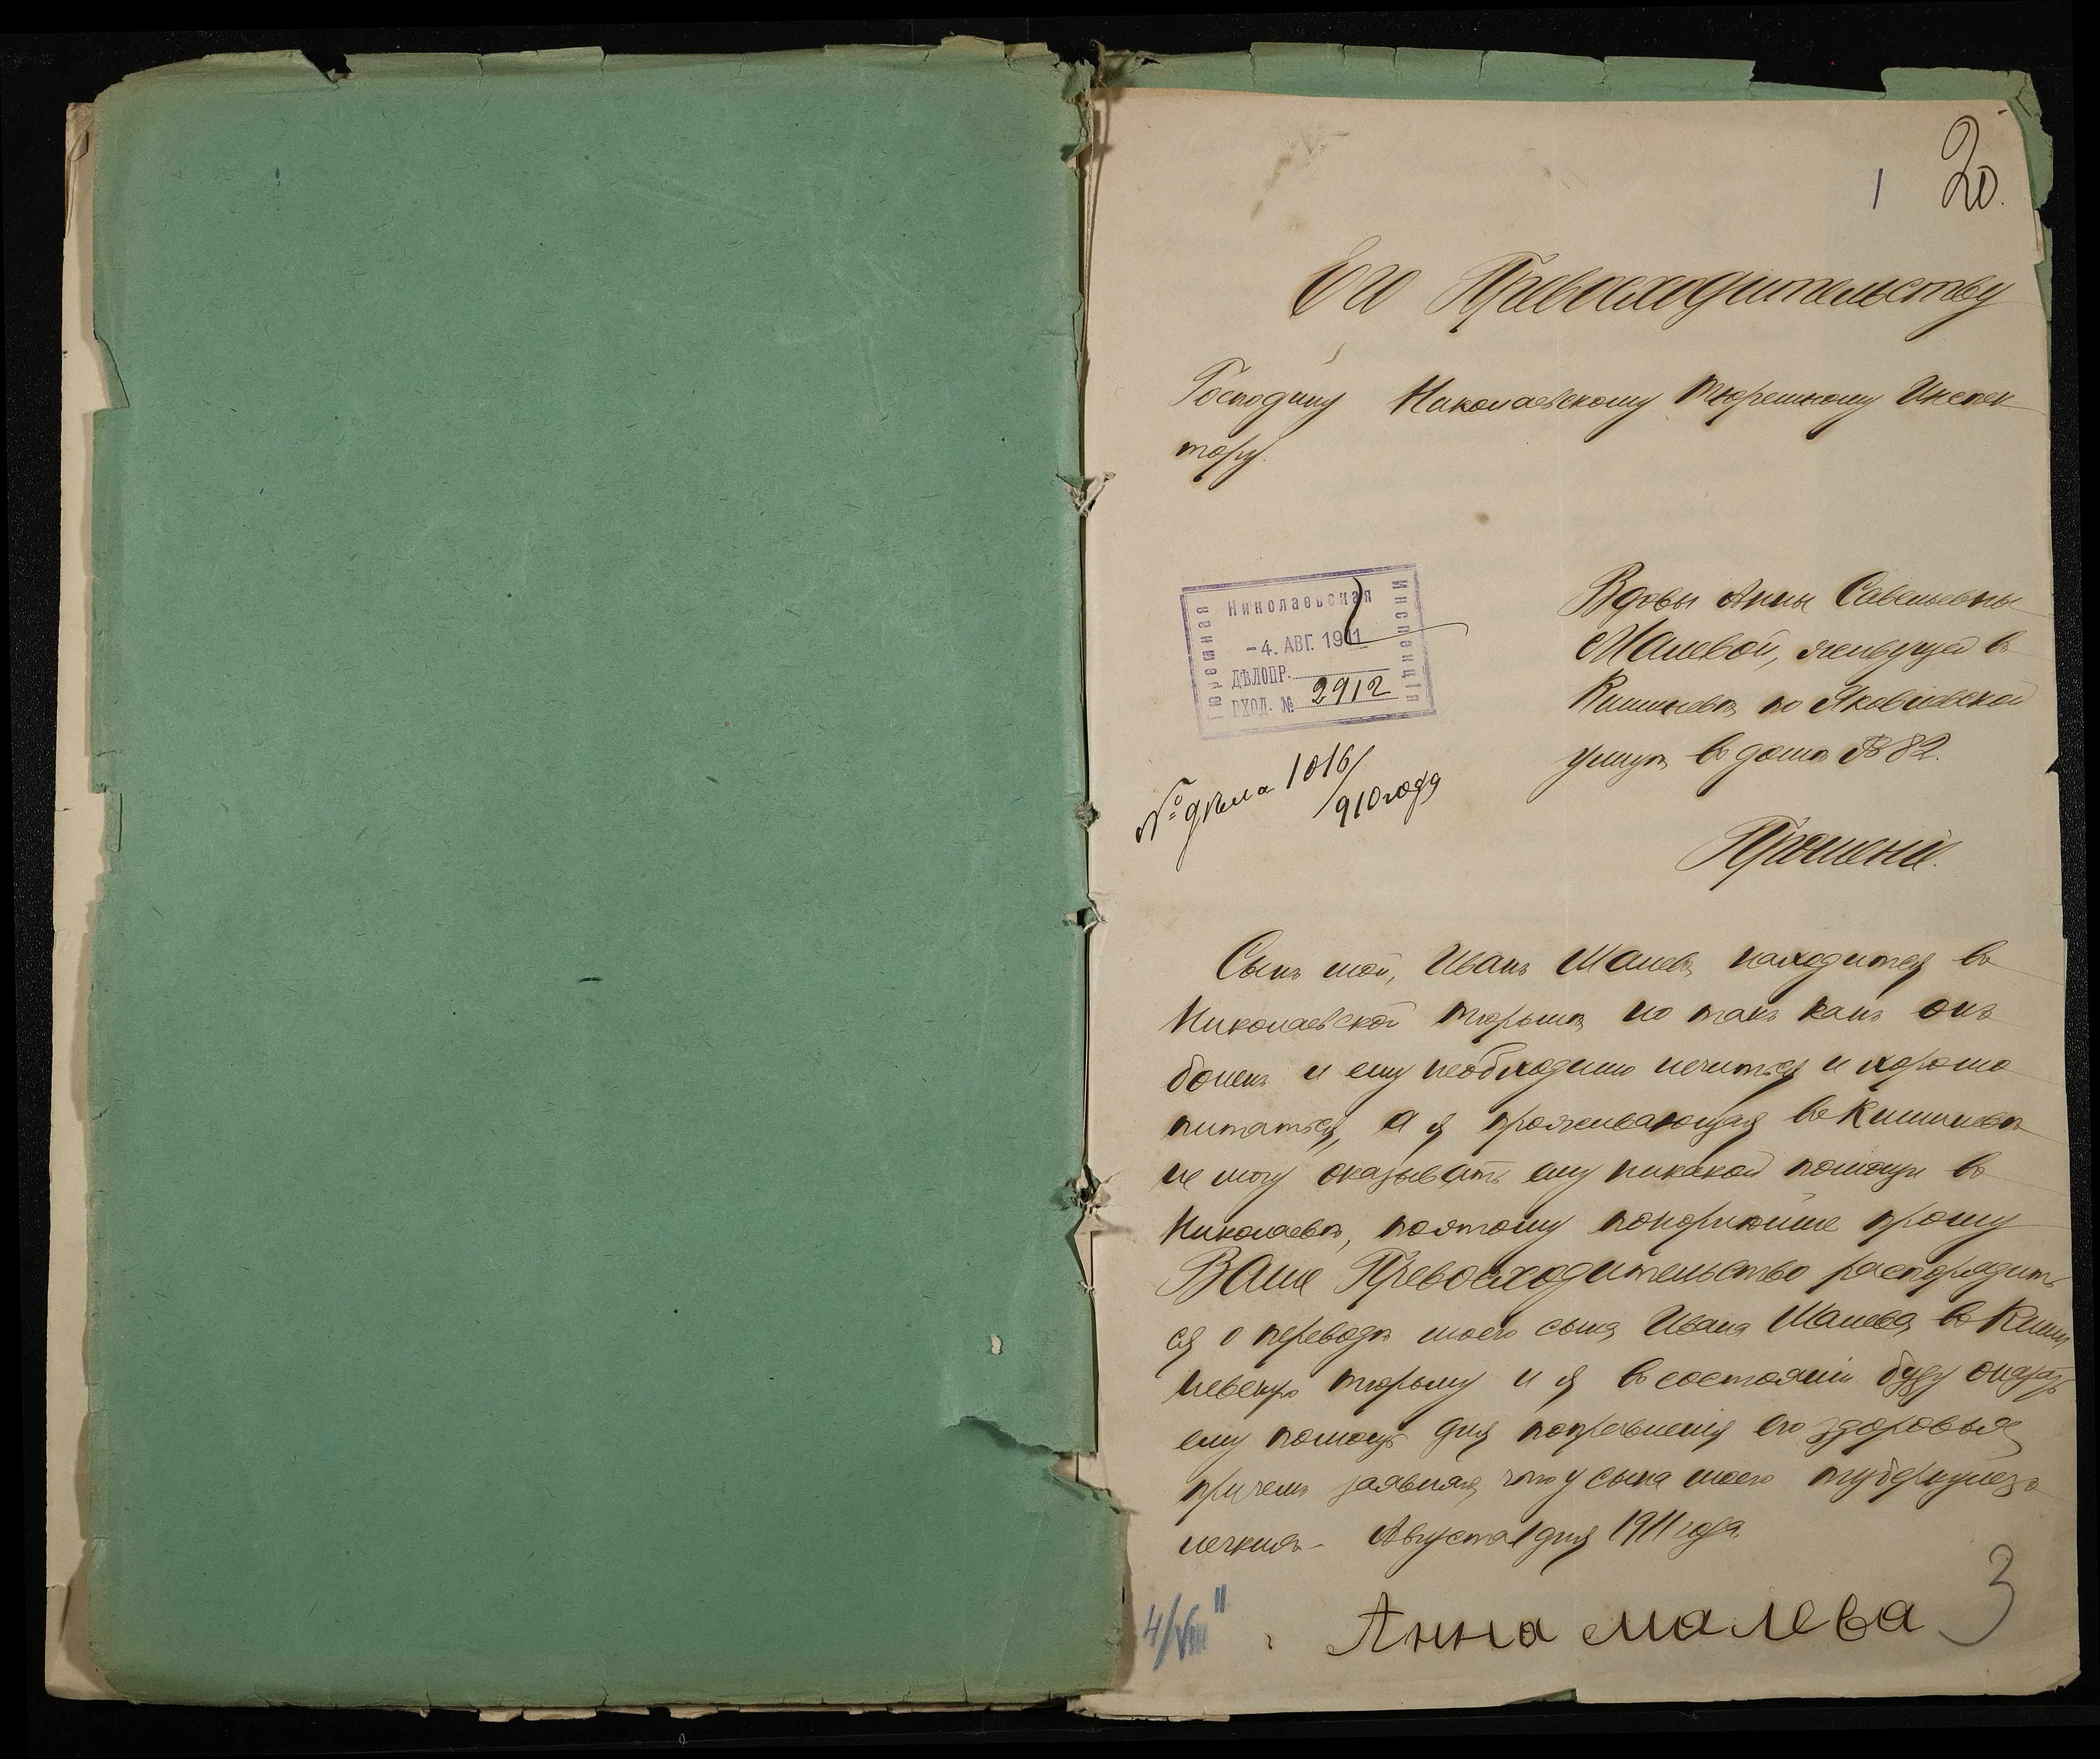 1 20.
Его Превосходительству
Господину Николаевскому тюремному Инспек
тору.
Николаевская
Тюремная
Инспекція
-4. АВГ. 1911
ДѢЛОПР.
ВХОД. № 2912
№ дѣла 1016/
910 года
Вдовы Анны Савельевны
Малевой, живущей въ
Кишиневѣ по Яковлевской
улицѣ въ домѣ № 82.
Прошеніе.
Сынъ мой, Иванъ Малевъ находится въ
Николаевской тюрьмѣ но такъ какъ онъ
боленъ и ему необходимо лечиться и хорошо
питаться, а я проживающая въ Кишиневѣ
не могу оказывать ему никакой помощи въ
Николаевѣ, поэтому покорнѣйше прошу
Ваше Превосходительство распорядить
ся о переводѣ моего сына Ивана Малева въ Киши
невскую тюрьму и я въ состояніи буду оказать
ему помощь для поправленія его здоровья
причемъ заявляю, что у сына моего туберкулезъ
легкихъ. Августа 1 дня 1911 года
4/VIII 11
Анна малева 3